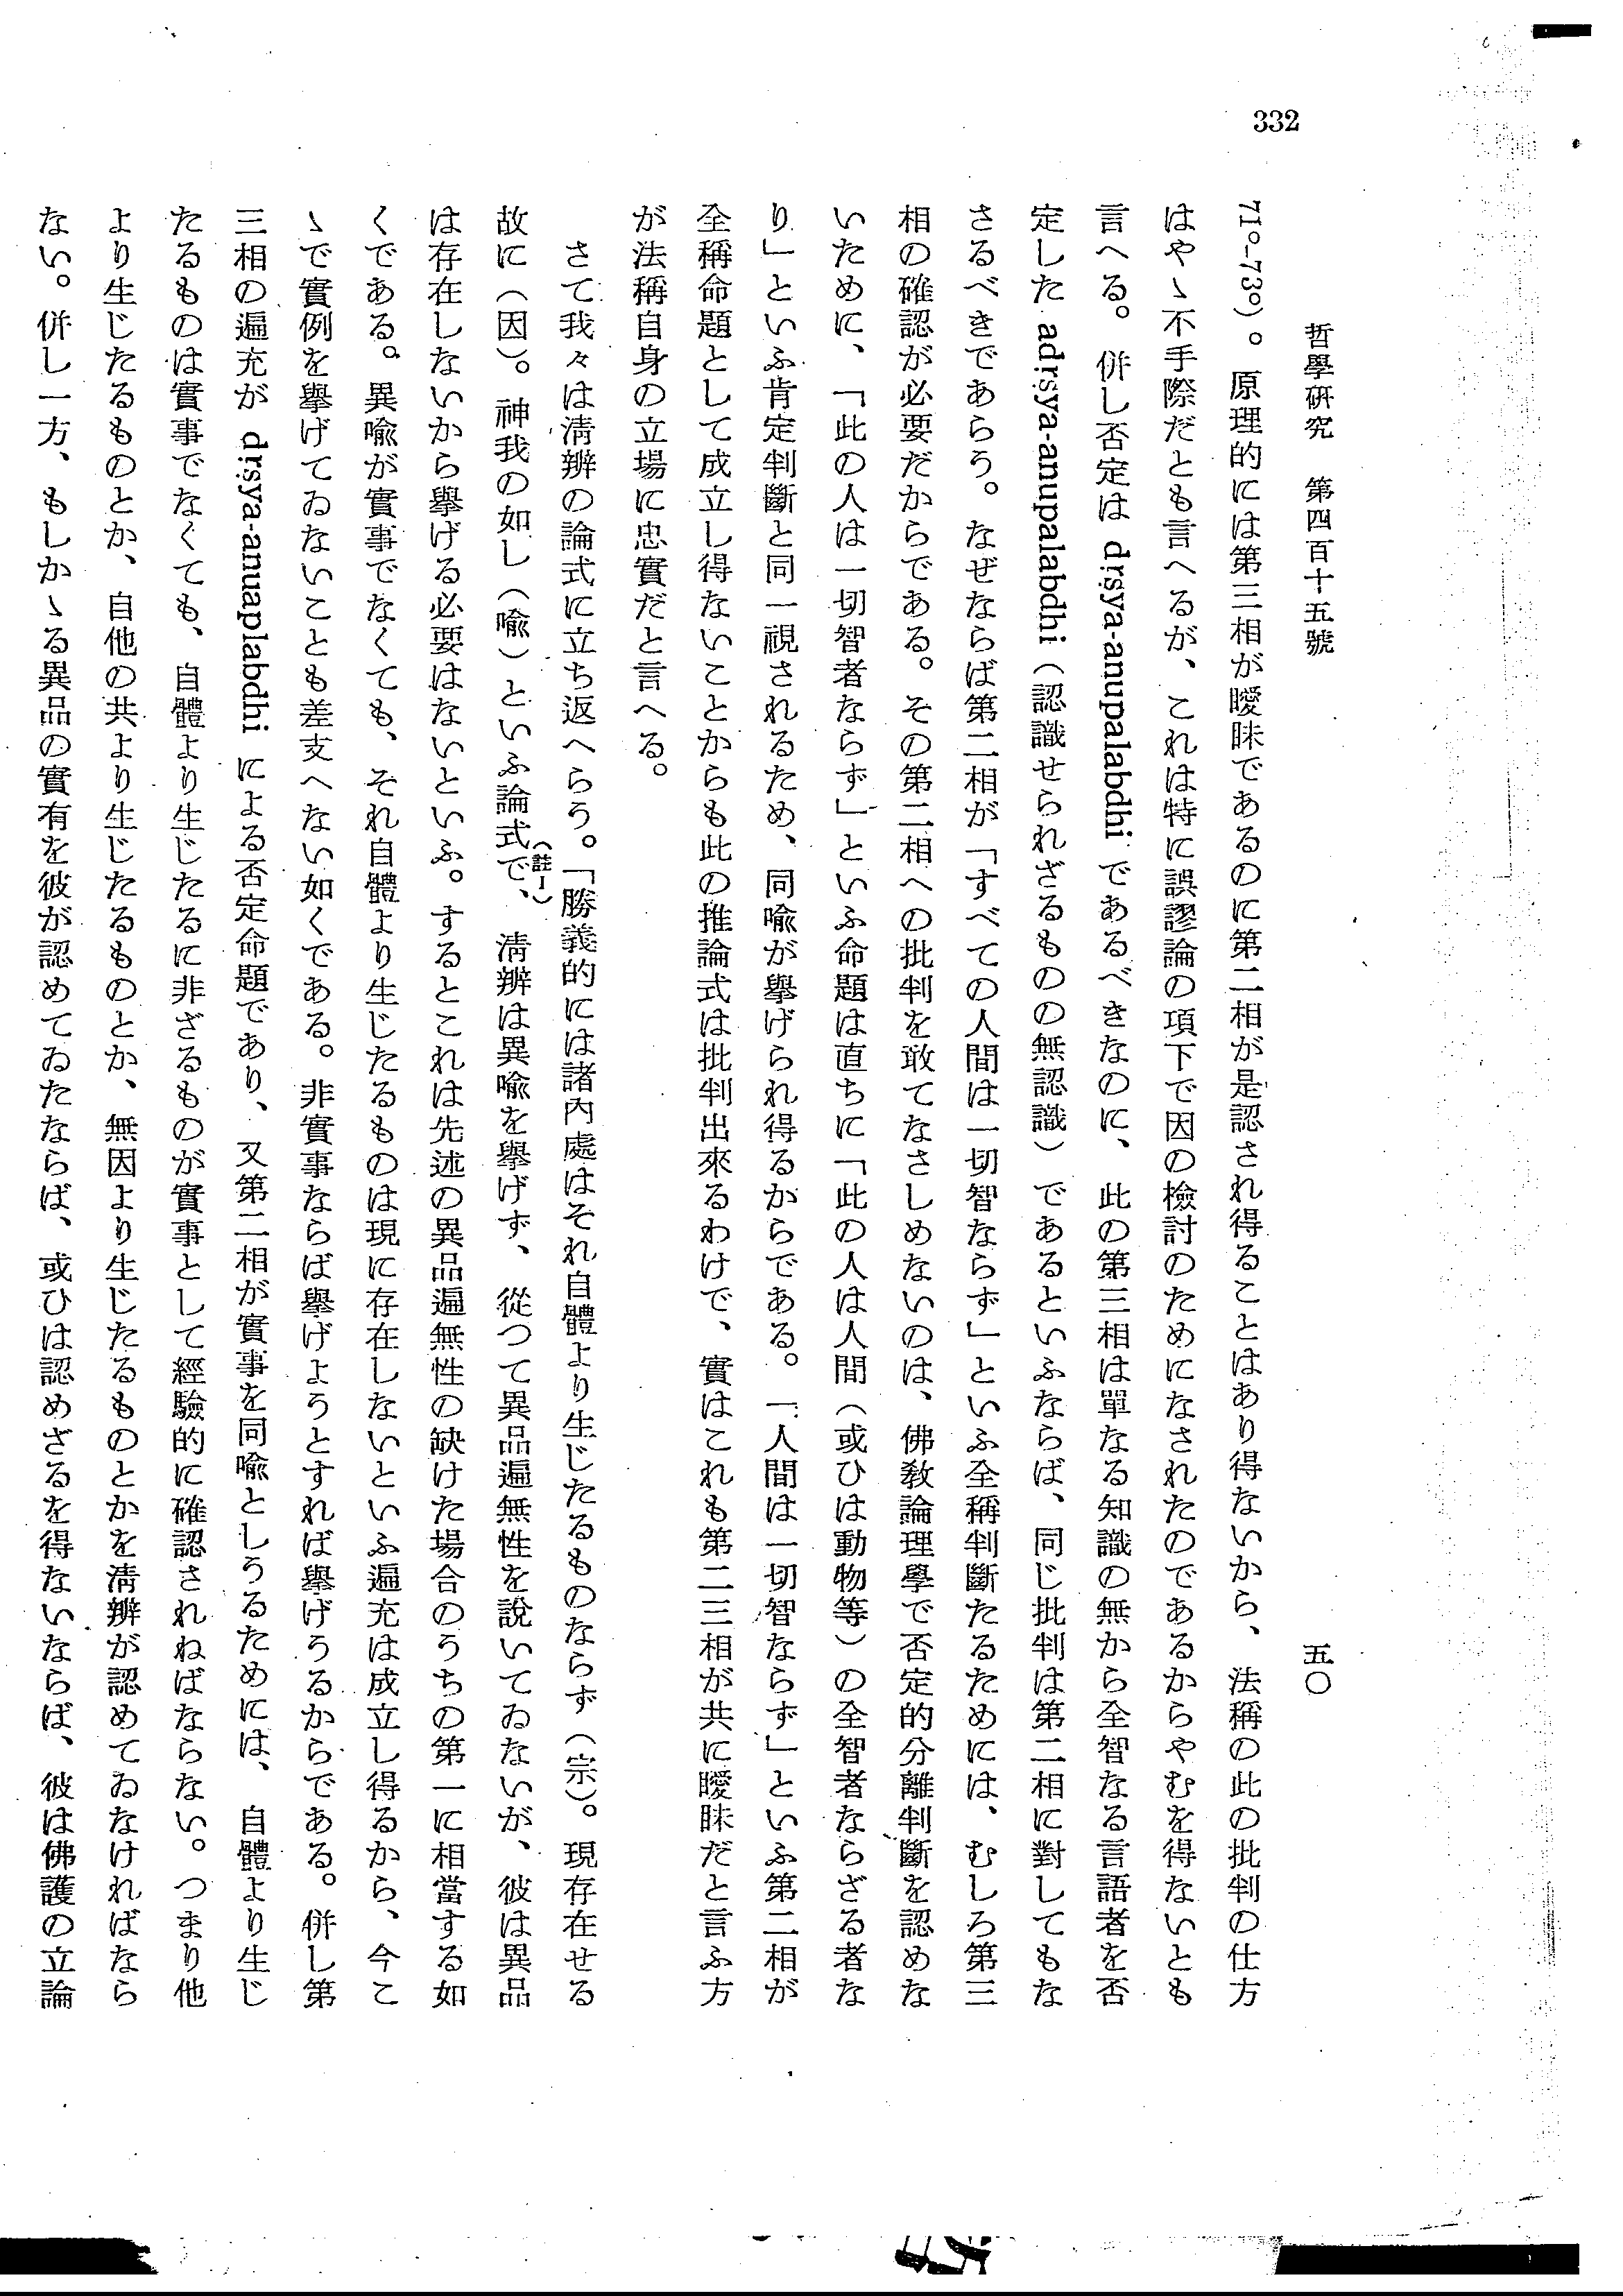 332
哲學研究　第四百十五號　五〇
71º–73º)。原理的には第三相が曖昧であるのに第二相が是認され得ることはあり得ないから、法稱の此の批判の仕方
はやゝ不手際だとも言へるが、これは特に誤謬論の項下で因の檢討のためになされたのであるからやむを得ないとも
言へる。併し否定は dṛsya-anupalabdhi であるべきなのに、此の第三相は單なる知識の無から全智なる言語者を否
定した adṛsya-anupalabdhi（認識せられざるものの無認識）であるといふならば、同じ批判は第二相に對してもな
さるべきであらう。なぜならば第二相が「すべての人間は一切智ならず」といふ全稱判斷たるためには、むしろ第三
相の確認が必要だからである。その第二相への批判を敢てなさしめないのは、佛敎論理學で否定的分離判斷を認めな
いために、「此の人は一切智者ならず」といふ命題は直ちに「此の人は人間（或ひは動物等）の全智者ならざる者な
り」といふ肯定判斷と同一視されるため、同喩が擧げられ得るからである。「人間は一切智ならず」といふ第二相が
全稱命題として成立し得ないことからも此の推論式は批判出來るわけで、實はこれも第二三相が共に曖昧だと言ふ方
が法稱自身の立場に忠實だと言へる。
さて我々は淸辨の論式に立ち返へらう。「勝義的には諸內處はそれ自體より生じたるものならず（宗）。現存在せる
故に（因）。神我の如し（喩）といふ論式で、（註1）淸辨は異喩を擧げず、從つて異品遍無性を說いてゐないが、彼は異品
は存在しないから擧げる必要はないといふ。するとこれは先述の異品遍無性の缺けた場合のうちの第一に相當する如
くである。異喩が實事でなくても、それ自體より生じたるものは現に存在しないといふ遍充は成立し得るから、今こ
ゝで實例を擧げてゐないことも差支へない如くである。非實事ならば擧げようとすれば擧げうるからである。併し第
三相の遍充が dṛsya-anuaplabdhi による否定命題であり、又第二相が實事を同喩としうるためには、自體より生じ
たるものは實事でなくても、自體より生じたるに非ざるものが實事として經驗的に確認されねばならない。つまり他
より生じたるものとか、自他の共より生じたるものとか、無因より生じたるものとかを淸辨が認めてゐなければなら
ない。併し一方、もしかゝる異品の實有を彼が認めてゐたならば、或ひは認めざるを得ないならば、彼は佛護の立論